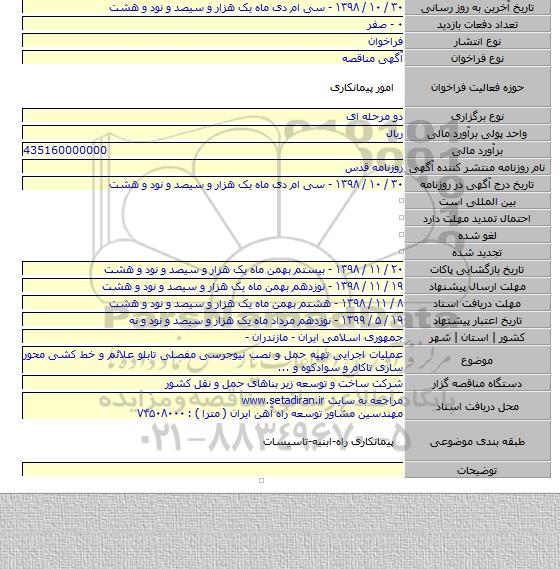 تاریخ آخرین به روز رسانی ۳۰ / ۱۰ / ۱۳۹۸ - سی ام دی ماه یک هزار و سیصد و نود و هشت
تعداد دفعات بازدید ۰ - صفر
نوع انتشار فراخوان
نوع فراخوان آگهی مناقصه
حوزه فعالیت فراخوان امور پیمانکاری
نوع برگزاری دو مرحله ای
واحد پولی برآورد مالی ریال
برآورد مالی 435160000000
نام روزنامه منتشر کننده آگهی روزنامه قدس
تاریخ درج آگهی در روزنامه ۳۰ / ۱۰ / ۱۳۹۸ - سی ام دی ماه یک هزار و سیصد و نود و هشت
بین المللی است
احتمال تمدید مهلت دارد
لغو شده
تجدید شده
تاریخ بازگشایی پاکات ۲۰ / ۱۱ / ۱۳۹۸ - بیستم بهمن ماه یک هزار و سیصد و نود و هشت
مهلت ارسال پیشنهاد ۱۹ / ۱۱ / ۱۳۹۸ - نوزدهم بهمن ماه یک هزار و سیصد و نود و هشت
مهلت دریافت اسناد ۸ / ۱۱ / ۱۳۹۸ - هشتم بهمن ماه یک هزار و سیصد و نود و هشت
تاریخ اعتبار پیشنهاد ۱۹ / ۵ / ۱۳۹۹ - نوزدهم مرداد ماه یک هزار و سیصد و نود و نه
کشور | استان | شهر جمهوری اسلامی ایران - مازندران -
موضوع عملیات اجرایی تهیه حمل و نصب نیوجرسی مفصلی تابلو علائم و خط کشی محور
ساری تاکام و سوادکوه و ...
دستگاه مناقصه گزار شرکت ساخت و توسعه زیر بناهای حمل و نقل کشور
محل دریافت اسناد مراجعه به سایت www.setadiran.ir
مهندسین مشاور توسعه راه آهن ایران ( مترا ) : ۷۴۵۰۸۰۰۰
طبقه بندی موضوعی پیمانکاری راه-ابنیه-تاسیسات
توضیحات
۰۲۱-۸۸۳۴۹۶۷۰-۵